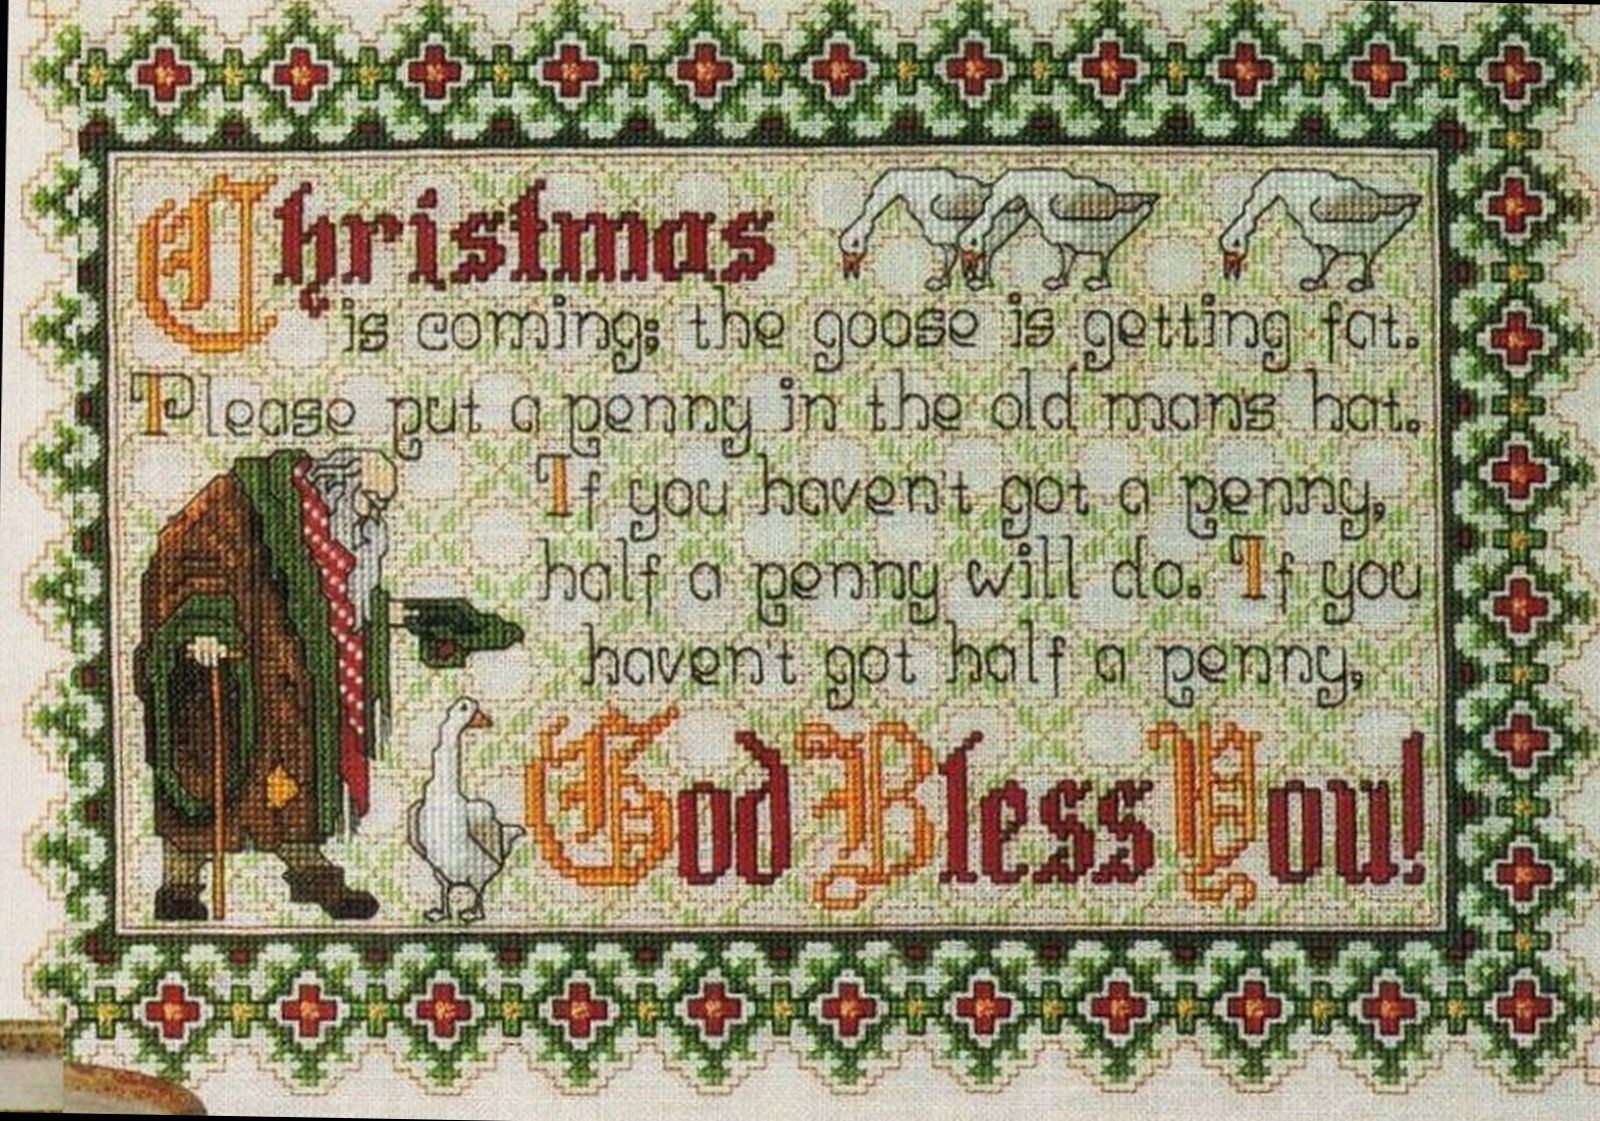 Christmas
is coming; the goose is getting fat.
Please put a penny in the old man's hat.
If you haven't got a penny,
half a penny will do. If you
haven't got half a penny,
God Bless You!